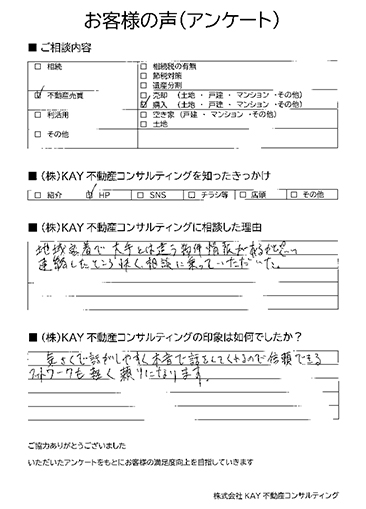 お客様の声（アンケート）
■ ご相談内容
□ 相続
□ 相続税の有無
□ 節税対策
□ 遺産分割
☑ 不動産売買
□ 売却 （土地 ・ 戸建 ・ マンション ・その他）
☑ 購入 （土地 ・ 戸建 ・ マンション ・その他）
□ 利活用
□ 空き家（戸建 ・ マンション ・その他）
□ 土地
□ その他
■ （株）KAY 不動産コンサルティングを知ったきっかけ
□ 紹介 ☑ HP □ SNS □ チラシ等 □ 店頭 □ その他
■ （株）KAY 不動産コンサルティングに相談した理由
地域密着で大手とは違う物件情報があるかと思い
連絡したところ快く相談に乗っていただいた。
■ （株）KAY 不動産コンサルティングの印象は如何でしたか？
気さくで話がしやすく本音で話をしてくれるので信頼できる
フットワークも軽く頼りになります。
ご協力ありがとうございました
いただいたアンケートをもとにお客様の満足度向上を目指していきます
株式会社 KAY 不動産コンサルティング